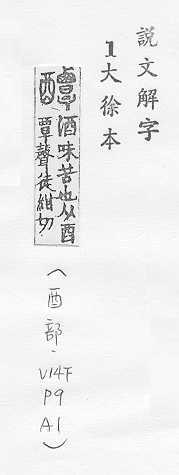 說文解字
1大徐本
酒味苦也从酉
覃聲徒紺切
(酉部.
V14下
P9
A1)